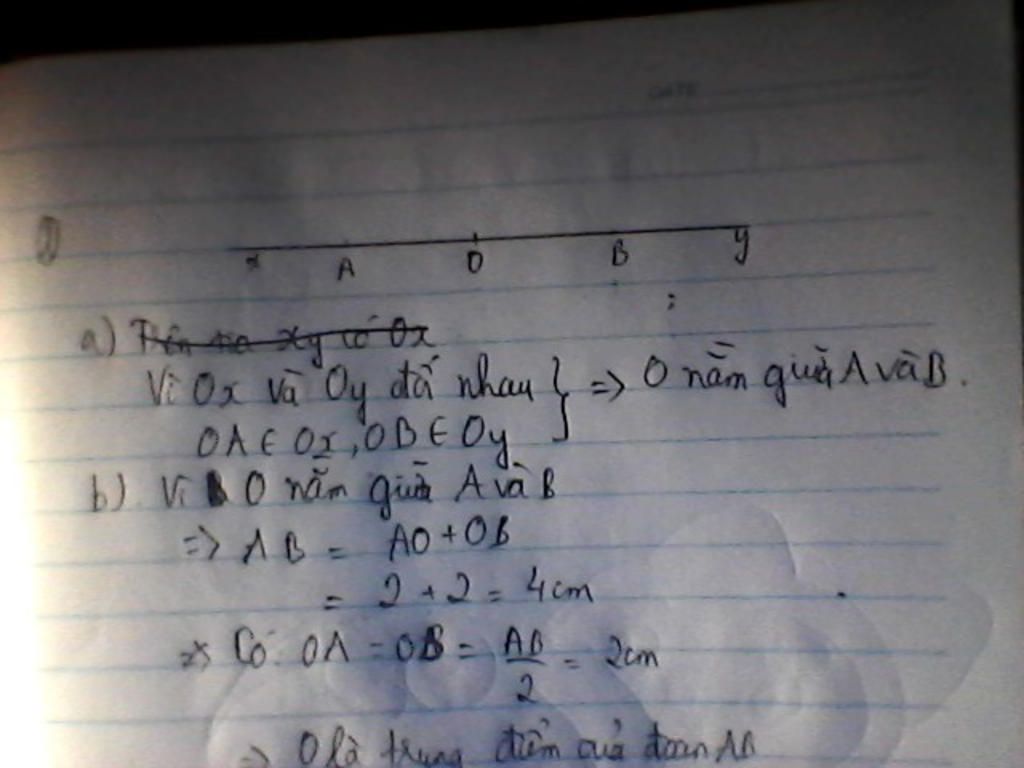 DATE
x A O B y
a)
Vì Ox và Oy đối nhau } => O nằm giữa A và B.
OA ∈ Ox, OB ∈ Oy
b) Vì O nằm giữa A và B
=> AB = AO + OB
= 2 + 2 = 4cm
=> Có: OA = OB = AB/2 = 2cm
=> O là trung điểm của đoạn AB